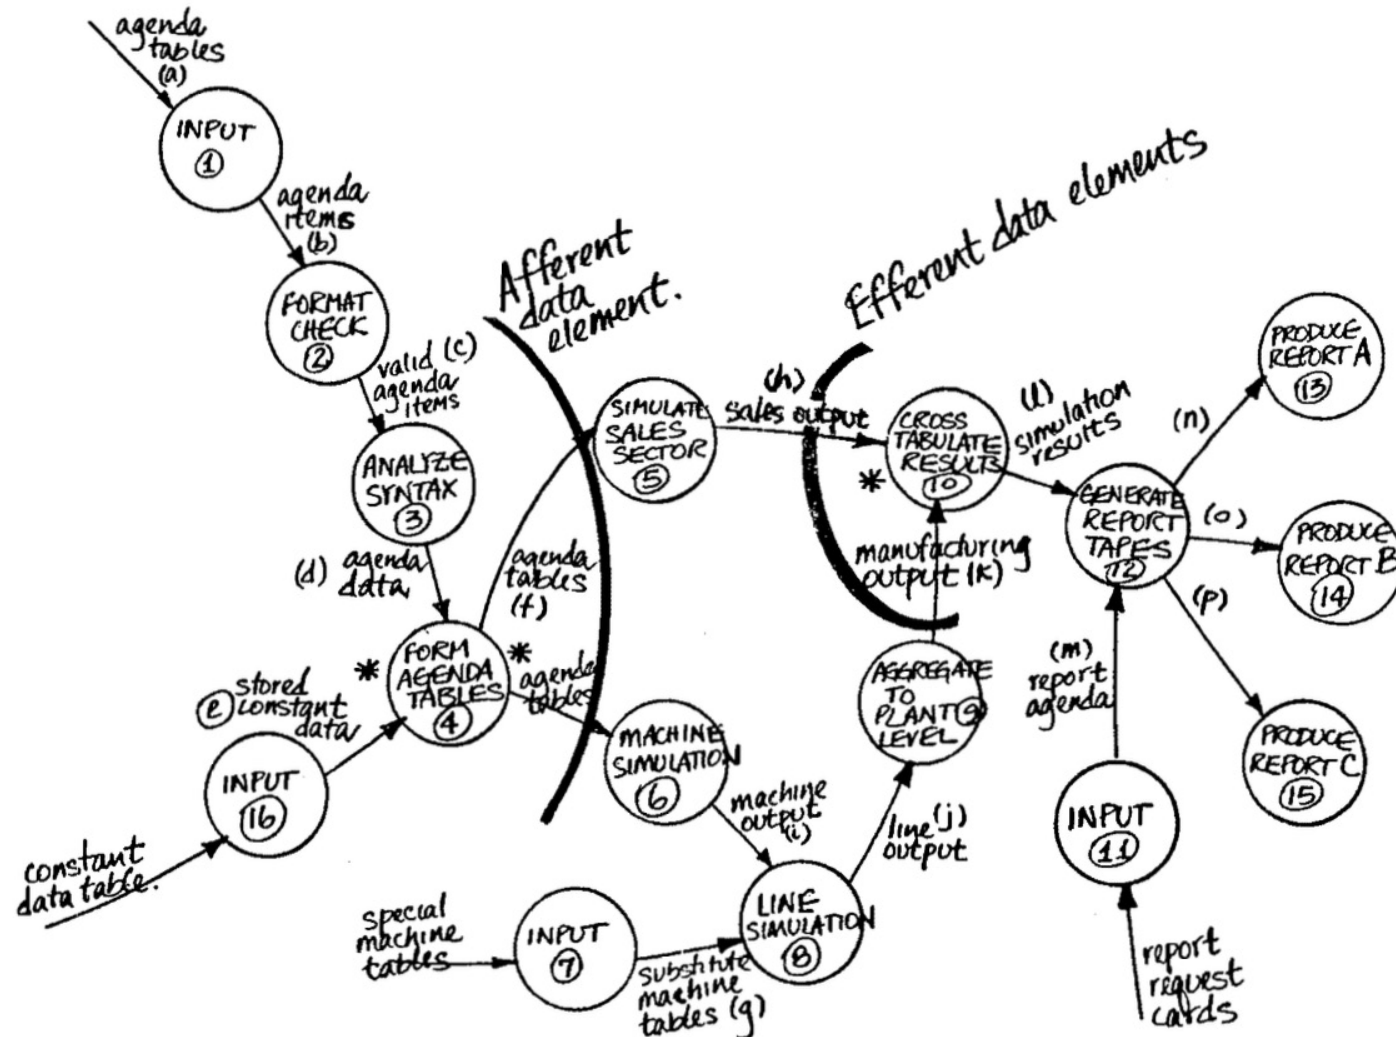 agenda
tables
(a)
INPUT
1
agenda
items
(b)
FORMAT
CHECK
2
valid (c)
agenda
items
ANALYZE
SYNTAX
3
(d) agenda
data
FORM
AGENDA
TABLES
4
*
*
e stored
constant
data
INPUT
16
constant
data table.
Afferent
data
element.
agenda
tables
(f)
agenda
tables
SIMULATE
SALES
SECTOR
5
MACHINE
SIMULATION
6
machine
output
(i)
special
machine
tables
INPUT
7
substitute
machine
tables (g)
LINE
SIMULATION
8
line (j)
output
AGGREGATE
TO
PLANT 9
LEVEL
manufacturing
output (k)
Efferent data elements
(h)
sales output
CROSS
TABULATE
RESULTS
10
*
(l)
simulation
results
GENERATE
REPORT
TAPES
12
(m)
report
agenda
INPUT
11
report
request
cards
(n)
PRODUCE
REPORT A
13
(o)
PRODUCE
REPORT B
14
(p)
PRODUCE
REPORT C
15